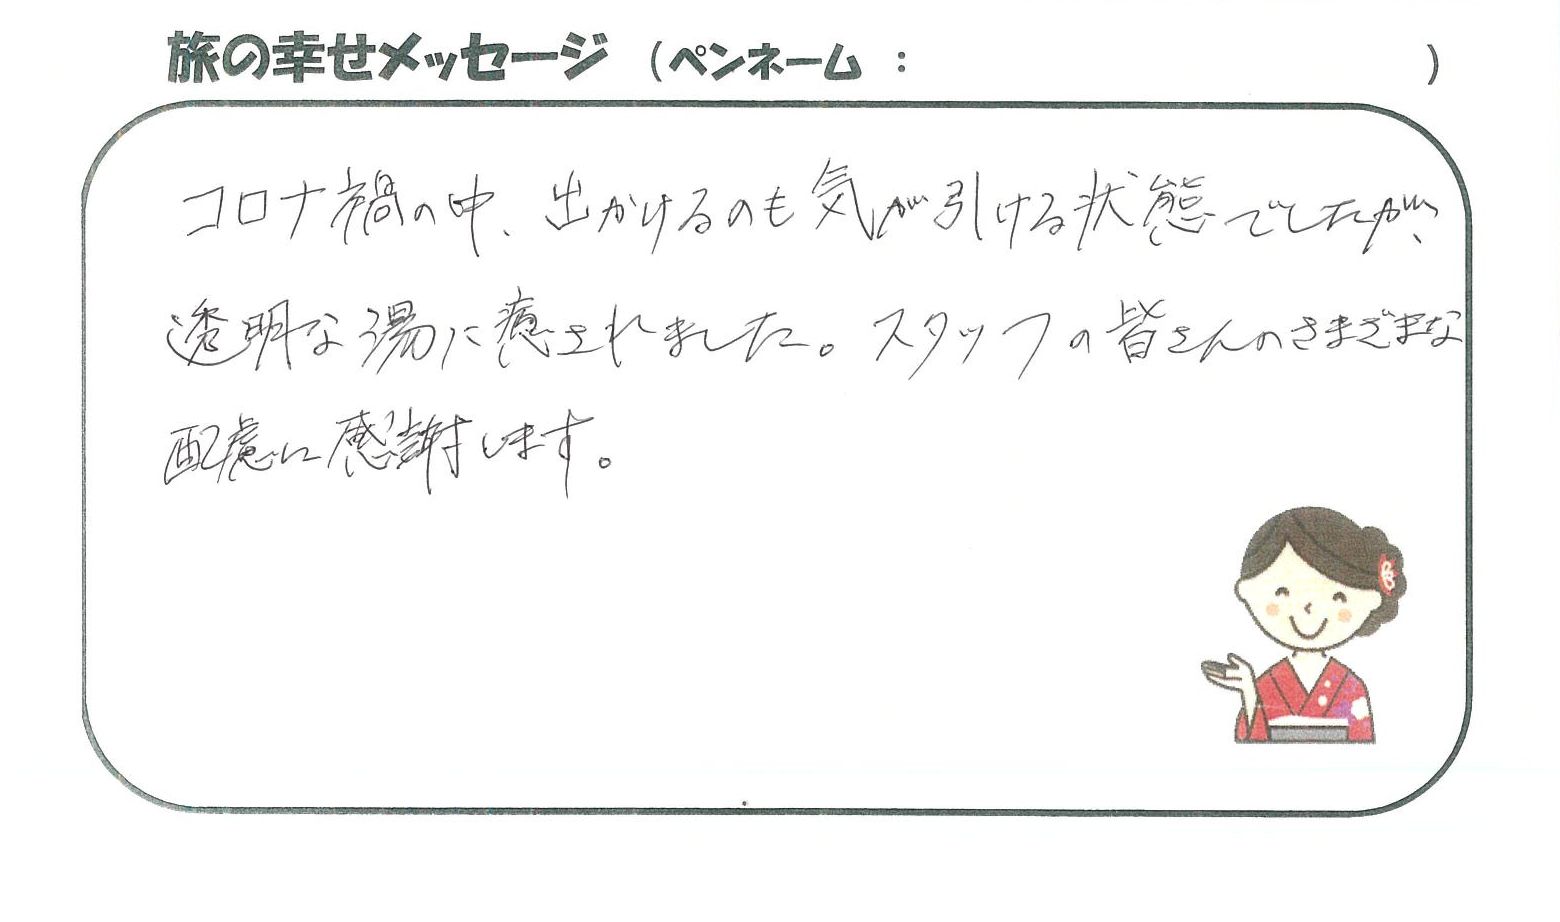 旅の幸せメッセージ （ペンネーム ： ）
コロナ禍の中、出かけるのも気が引ける状態でしたが、
透明な湯に癒されました。スタッフの皆さんのさまざまな
配慮に感謝します。